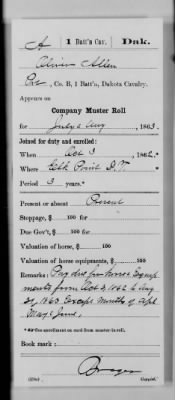 A | 1 Batt'n Cav. | Dak.
Oliver Allen
Pvt, Co. B, 1 Batt'n, Dakota Cavalry.
Appears on
Company Muster Roll
for July & Aug, 1863.
Joined for duty and enrolled:
When Oct 3, 1862.*
Where Elk Point D.T.
Period 3 years.*
Present or absent Present
Stoppage, $ 100 for
Due Gov't, $ 100 for
Valuation of horse, $ 100
Valuation of horse equipments, $ 100
Remarks: Pay due for horse & equip
ments from Oct 3, 1862 to Aug
31, 1863 Except months of Apl
May & June,
*See enrollment on card from muster-in roll.
Book mark:
Copyist.